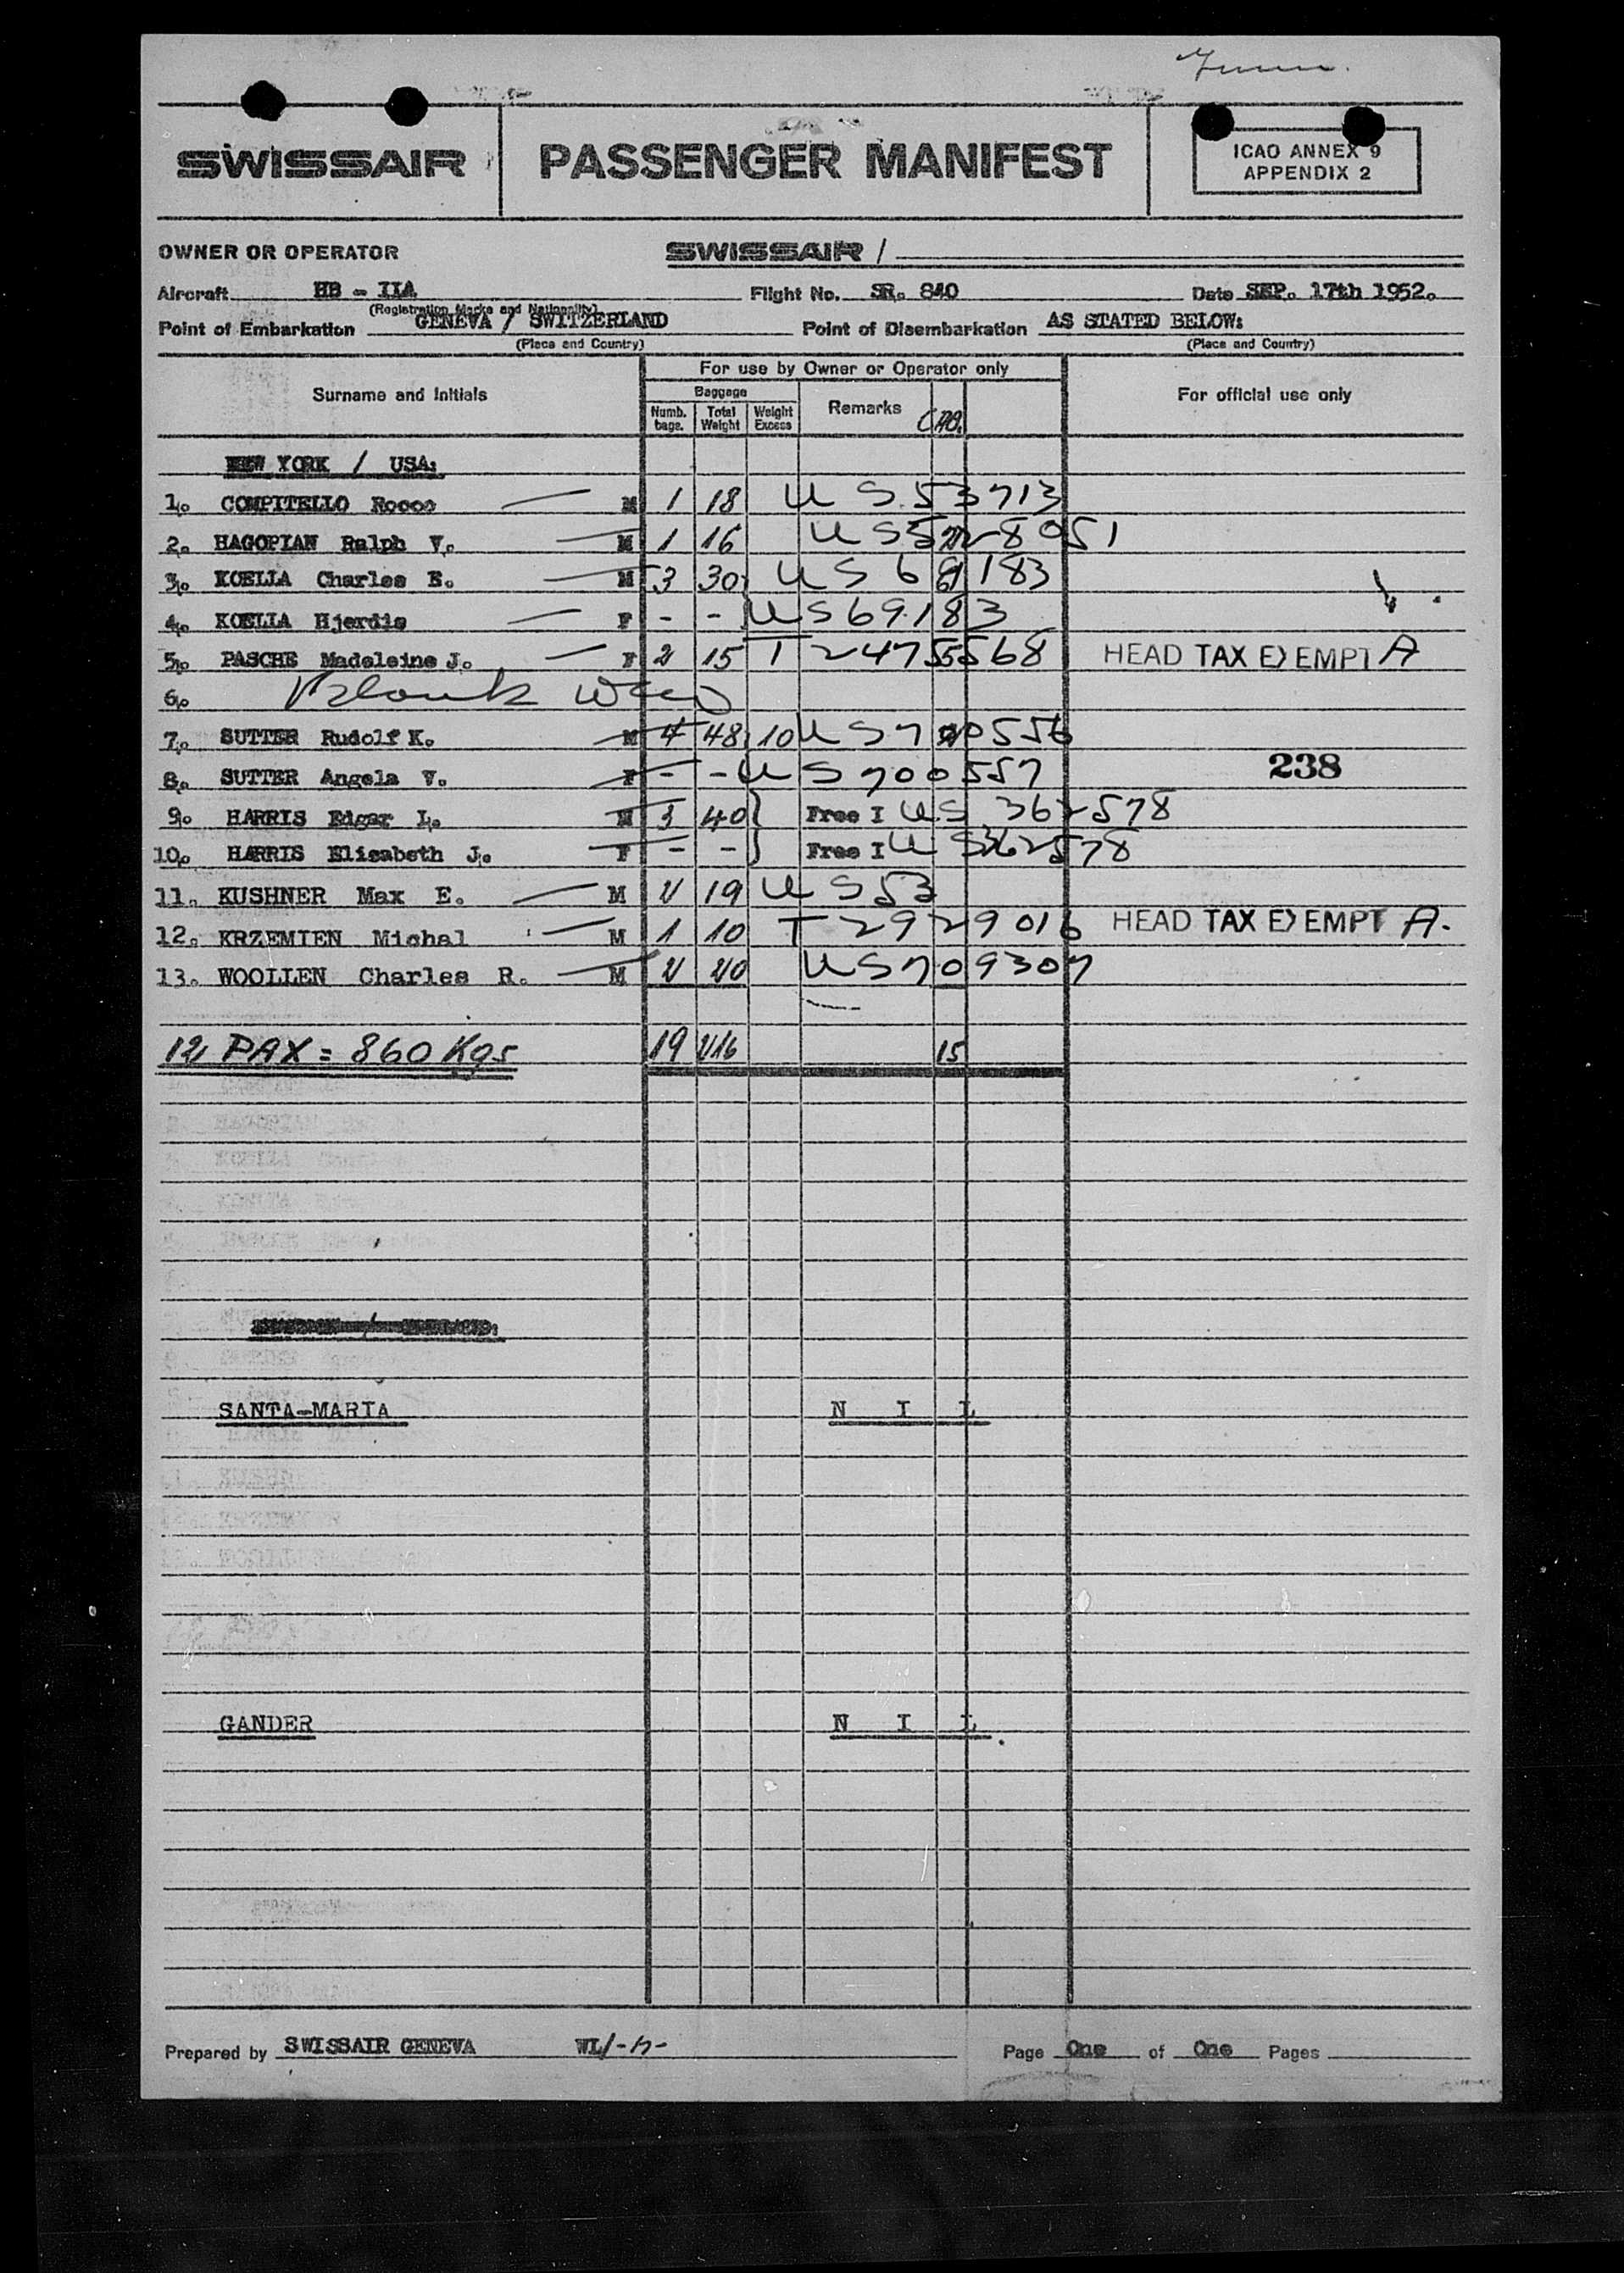 SWISSAIR PASSENGER MANIFEST ICAO ANNEX 9
APPENDIX 2
OWNER OR OPERATOR SWISSAIR /
Aircraft HB - IIA Flight No. SR. 840 Date SEP. 17th 1952.
(Registration Marks and Nationality)
Point of Embarkation GENEVA / SWITZERLAND Point of Disembarkation AS STATED BELOW:
(Place and Country) (Place and Country)
For use by Owner or Operator only
Surname and Initials Baggage Remarks For official use only
Numb. bags. Total Weight Weight Excess
NEW YORK / USA:
1. COMPITELLO Rocco M 1 18 US 53713
2. HAGOPIAN Ralph V. M 1 16
3. KOELLA Charles E. M 3 30 US 69183
4. KOELLA Hjerdis F - - US 69183
5. PASCHE Madeleine J. F 2 15 HEAD TAX EXEMPT A
6.
7. SUTTER Rudolf K. M 4 48 10 US 700556
8. SUTTER Angela V. F - - US 700557
238
9. HARRIS Edgar L. M 3 40 Free I US 362578
10. HARRIS Elisabeth J. F - - Free I US 362578
11. KUSHNER Max E. M 2 19 US 53
12. KRZEMIEN Michal M 1 10 T 2929016 HEAD TAX EXEMPT A.
13. WOOLLEN Charles R. M 2 20 US 709307
12 PAX = 860 Kgs 19 216 15
SANTA-MARIA N I L
GANDER N I L
Prepared by SWISSAIR GENEVA WL/-n- Page One of One Pages